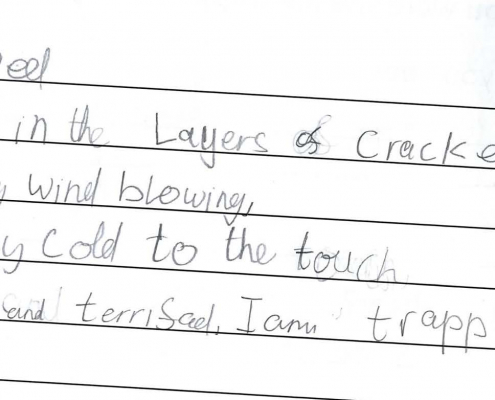 eel
in the Layers of Cracke
wind blowing,
y cold to the touch
and terrified, I am trapp